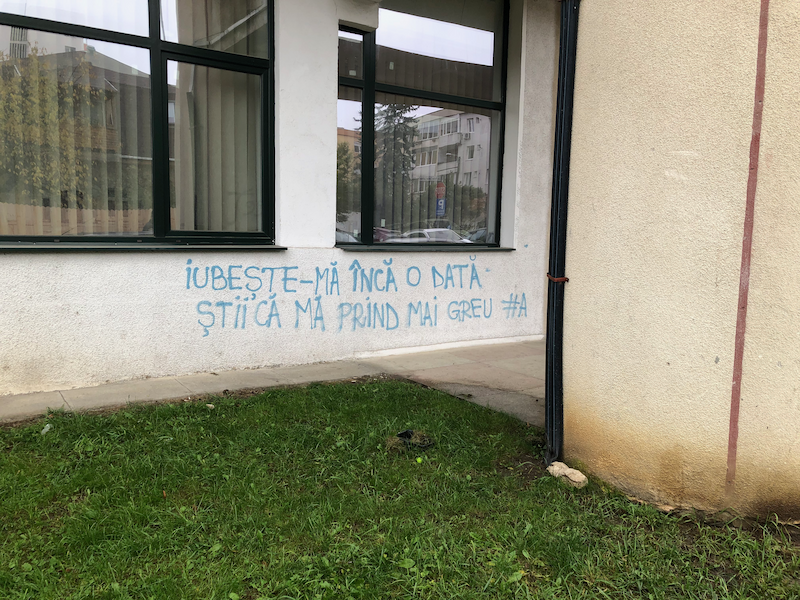 IUBEȘTE-MĂ ÎNCĂ O DATĂ
ȘTII CĂ MĂ PRIND MAI GREU #A